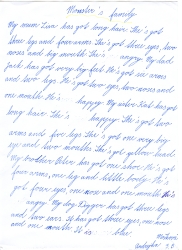 Monster's family
My mum Liza has got long hair. She's got
three legs and four arms. She's got three eyes, two
noses and big mouth. She's angry. My dad
Jack has got very big feet. He's got six arms
and two legs. He's got two eyes, two noses and
one mouth. He's happy. My sister Kat has got
long hair. She's happy. She's got two
arms and five legs. She's got one very big
eye and two mouths. She's got yellow hand.
My brother Peter has got one shoe. He's got
four arms, one leg and little body. He's got
four eyes, one nose and one mouth. He's
angry. My dog Digger has got three legs
and two ears. It has got three eyes, one nose
and one mouth. It is blue.